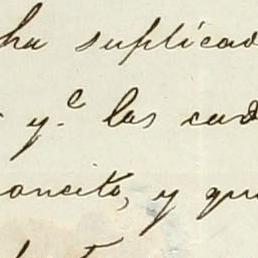 ha suplicad
y.e las cad
oncito, y que